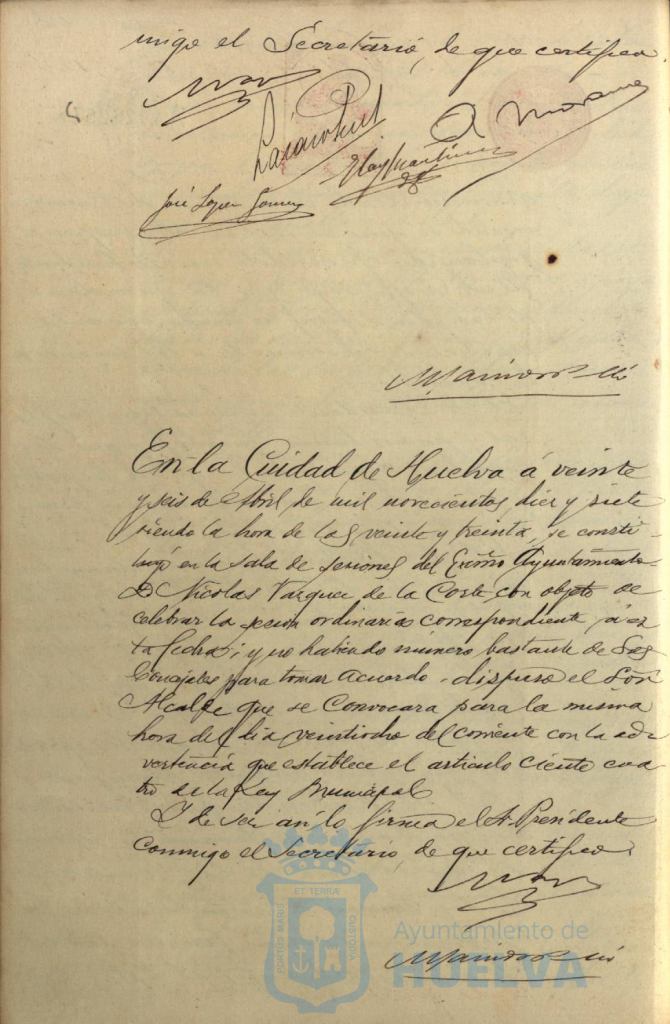 migo el Secretario, de que certifico.
José Lopez Gomez
En la Ciudad de Huelva á veinte
y seis de Abril de mil novecientos diez y siete
siendo la hora de las veinte y treinta, se consti-
tuyó en la sala de sesiones del Excmo Ayuntamiento
D Nicolas Vazquez de la Corte, con objeto de
celebrar la secion ordinaria correspondiente á es
ta fecha; y no habiendo número bastante de Sres
Concejales para tomar acuerdo dispuso el Sor
Alcalde que se convocara para la misma
hora del dia veintiocho del corriente con la ad-
vertencia que establece el articulo ciento cua
tro de la Ley Municipal
Y de ser así lo firma el Sr Presidente
conmigo el Secretario, de que certifico.
ET TERRÆ
PORTUS MARIS
CUSTODIA
Ayuntamiento de
HUELVA